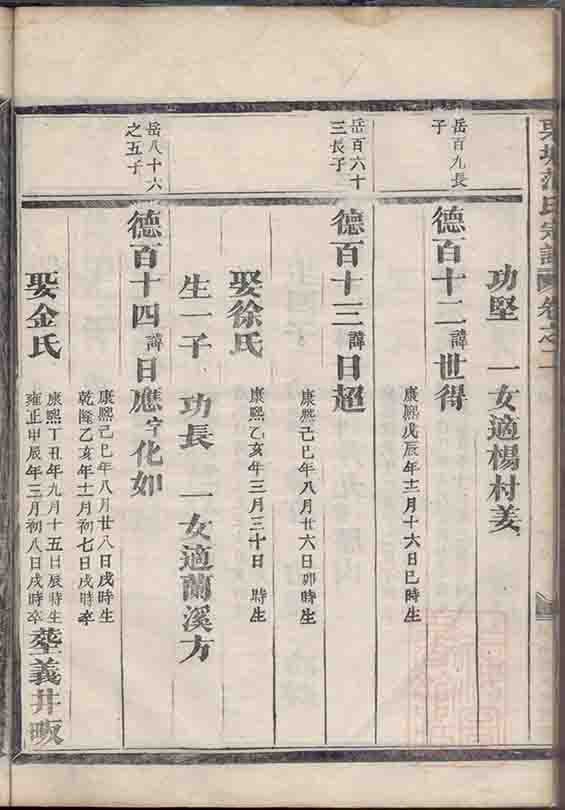 氏宗譜 卷之二
功堅 一女適楊村姜
岳百九長
子
德百十二諱世得
康熙戊辰年十二月十六日巳時生
岳百六十
三長子
德百十三諱日超
康熙己巳年八月廿六日卯時生
娶徐氏
康熙乙亥年三月三十日 時生
生一子 功長 一女適蘭溪方
岳八十六
之五子
德百十四諱日應字化如
康熙己巳年八月廿八日戌時生
乾隆乙亥年十一月初七日戌時卒
娶金氏
康熙丁丑年九月十五日辰時生
雍正甲辰年三月初八日戌時卒
塟義井畈